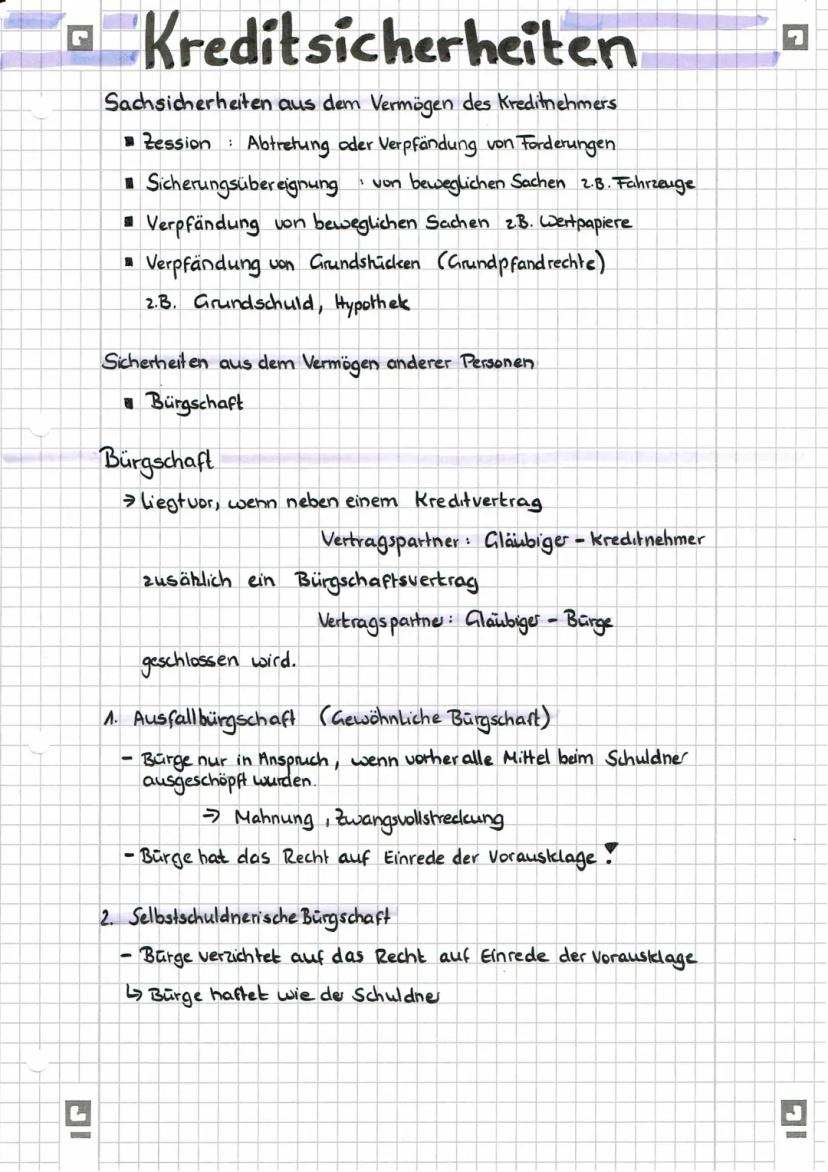 Kreditsicherheiten
Sachsicherheiten aus dem Vermögen des Kreditnehmers
▪ Zession : Abtretung oder Verpfändung von Forderungen
▪ Sicherungsübereignung : von beweglichen Sachen z.B. Fahrzeuge
▪ Verpfändung von beweglichen Sachen z.B. Wertpapiere
▪ Verpfändung von Grundstücken (Grundpfandrechte)
z.B. Grundschuld, Hypothek
Sicherheiten aus dem Vermögen anderer Personen
▪ Bürgschaft
Bürgschaft
→ liegt vor, wenn neben einem Kreditvertrag
Vertragspartner : Gläubiger - Kreditnehmer
zusählich ein Bürgschaftsvertrag
Vertragspartner : Gläubiger - Bürge
geschlossen wird.
1. Ausfallbürgschaft (Gewöhnliche Bürgschaft)
- Bürge nur in Anspruch, wenn vorher alle Mittel beim Schuldner
ausgeschöpft wurden.
→ Mahnung, Zwangsvollstreckung
- Bürge hat das Recht auf Einrede der Vorausklage !
2. Selbstschuldnerische Bürgschaft
- Bürge verzichtet auf das Recht auf Einrede der Vorausklage
↳ Bürge haftet wie der Schuldner